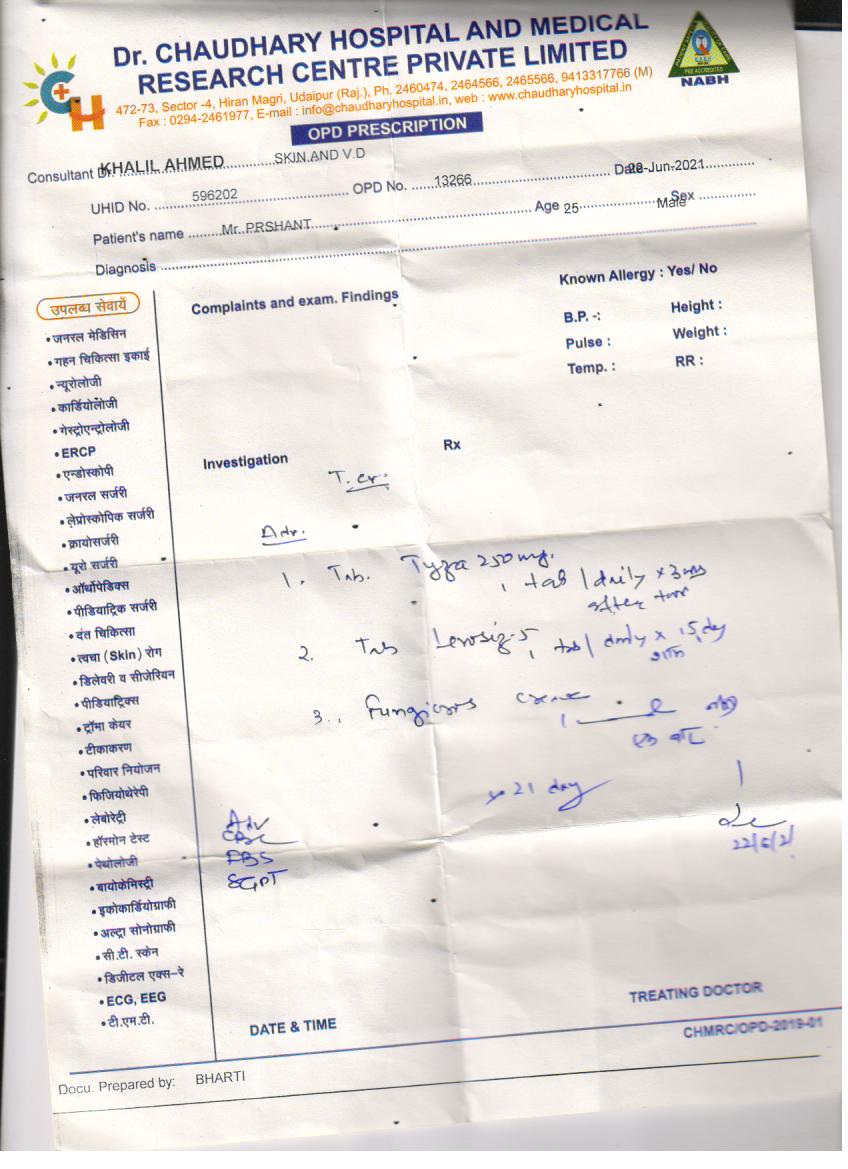 Dr. CHAUDHARY HOSPITAL AND MEDICAL
RESEARCH CENTRE PRIVATE LIMITED
472-73, Sector -4, Hiran Magri, Udaipur (Raj.), Ph. 2460474, 2464566, 2465566, 9413317766 (M)
Fax : 0294-2461977, E-mail : info@chaudharyhospital.in, web : www.chaudharyhospital.in
PRE ACCREDITED
NABH
OPD PRESCRIPTION
Consultant Dr. KHALIL AHMED SKIN AND V.D
UHID No. 596202 OPD No. 13266 Date -Jun-2021
Patient's name Mr. PRSHANT Age 25 Sex Male
Diagnosis
Complaints and exam. Findings
Known Allergy : Yes/ No
B.P. -: Height :
Pulse : Weight :
Temp. : RR :
उपलब्ध सेवायें
• जनरल मेडिसिन
• गहन चिकित्सा इकाई
• न्यूरोलोजी
• कार्डियोलोजी
• गेस्ट्रोएन्ट्रोलोजी
• ERCP
• एन्डोस्कोपी
• जनरल सर्जरी
• लेप्रोस्कोपिक सर्जरी
• क्रायोसर्जरी
• यूरो सर्जरी
• ऑर्थोपेडिक्स
• पीडियाट्रिक सर्जरी
• दंत चिकित्सा
• त्वचा (Skin) रोग
• डिलेवरी व सीजेरियन
• पीडियाट्रिक्स
• ट्रॉमा केयर
• टीकाकरण
• परिवार नियोजन
• फिजियोथेरेपी
• लेबोरेट्री
• हॉरमोन टेस्ट
• पेथोलोजी
• बायोकेमिस्ट्री
• इकोकार्डियोग्राफी
• अल्ट्रा सोनोग्राफी
• सी.टी. स्केन
• डिजीटल एक्स-रे
• ECG, EEG
• टी.एम.टी.
Investigation
Rx
T. cr.
Adv.
1. Tab. Tyza 250 mg.
1 tab / daily x 3
after
2. Tab Levosiz-5
1 tab / daily x 15 day
3. Fungicros creme
एक बार
x 21 day
Adv
CBC
FBS
SGPT
22/6/21
TREATING DOCTOR
DATE & TIME
CHMRC/OPD-2019-01
Docu. Prepared by: BHARTI